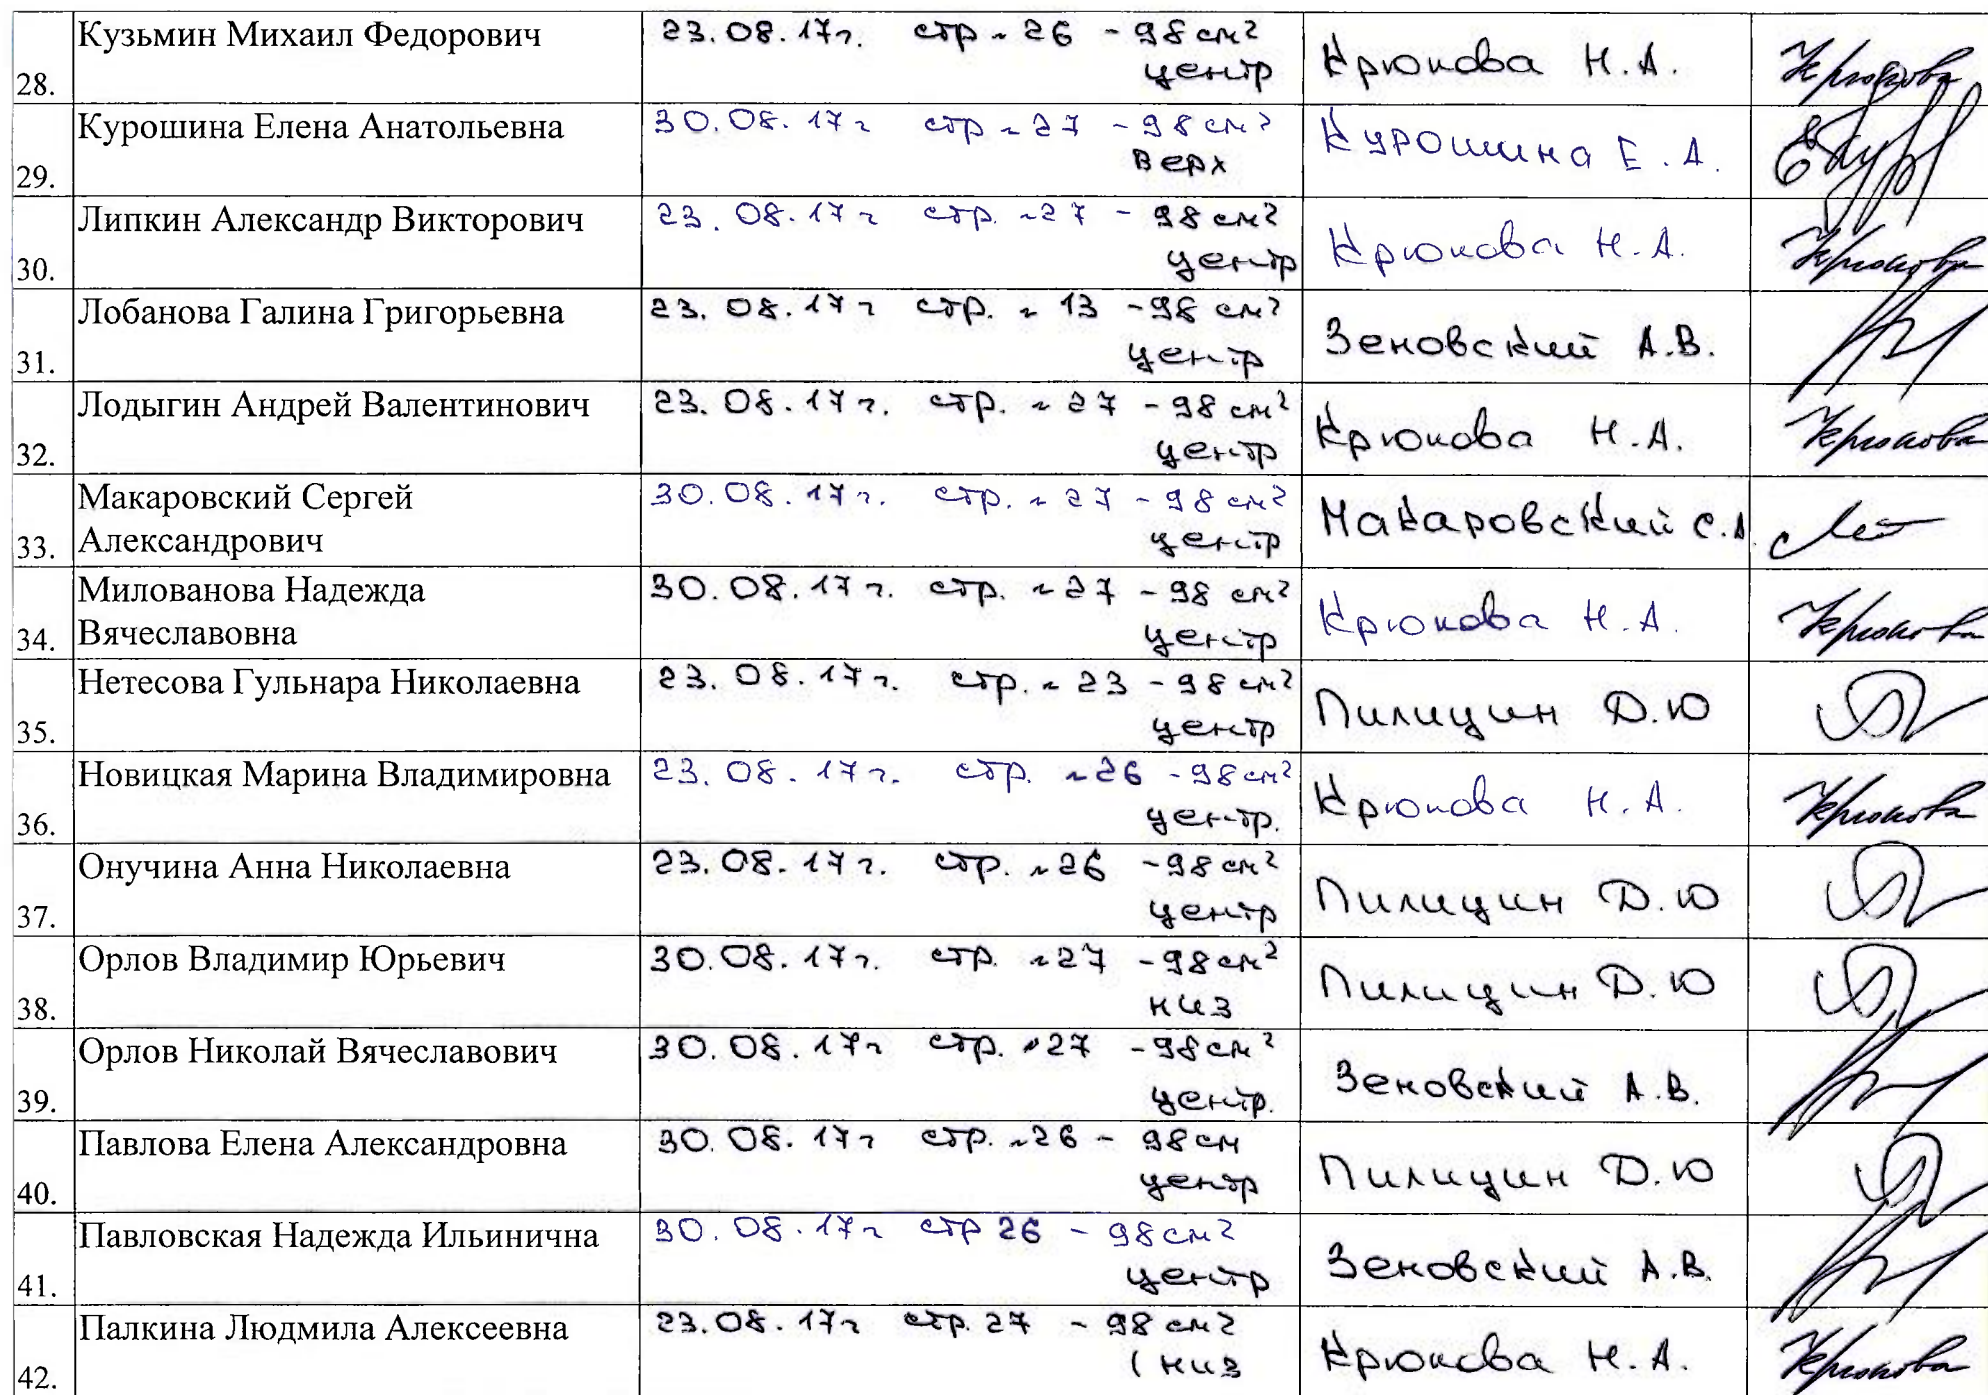 Кузьмин Михаил Федорович 23.08.17г. стр ~ 26 - 98 см²
центр Крюкова Н.А. Крюкова
28.
Курошина Елена Анатольевна 30.08.17г стр ~ 27 - 98 см²
верх Курошина Е.А.
29.
Липкин Александр Викторович 23.08.17г стр. ~27 - 98 см²
центр Крюкова Н.А. Крюкова
30.
Лобанова Галина Григорьевна 23.08.17г стр. ~ 13 - 98 см²
центр Зеновский А.В.
31.
Лодыгин Андрей Валентинович 23.08.17г. стр. ~ 27 - 98 см²
центр Крюкова Н.А. Крюкова
32.
Макаровский Сергей 30.08.17г. стр. ~ 27 - 98 см²
33. Александрович центр Макаровский С.А
Милованова Надежда 30.08.17г. стр. ~27 - 98 см²
34. Вячеславовна центр Крюкова Н.А. Крюкова
Нетесова Гульнара Николаевна 23.08.17г. стр. ~ 23 - 98 см²
центр Пилицин Д.Ю
35.
Новицкая Марина Владимировна 23.08.17г. стр. ~26 - 98 см²
центр. Крюкова Н.А. Крюкова
36.
Онучина Анна Николаевна 23.08.17г. стр. ~26 - 98 см²
центр Пилицин Д.Ю
37.
Орлов Владимир Юрьевич 30.08.17г. стр. ~27 - 98 см²
низ Пилицин Д.Ю
38.
Орлов Николай Вячеславович 30.08.17г стр. ~27 - 98 см²
центр. Зеновский А.В.
39.
Павлова Елена Александровна 30.08.17г стр. ~26 - 98 см
центр Пилицин Д.Ю
40.
Павловская Надежда Ильинична 30.08.17г стр 26 - 98 см²
центр Зеновский А.В.
41.
Палкина Людмила Алексеевна 23.08.17г стр. 27 - 98 см²
(низ Крюкова Н.А. Крюкова
42.